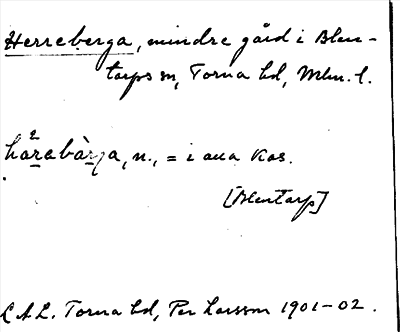 Herreberga, mindre gård i Blen-
tarps sn, Torna hd, Mlm. l.
hä²rabàrja, n., = i alla kas.
[Blentarp]
L A L. Torna hd, Per Larsson 1901-02.